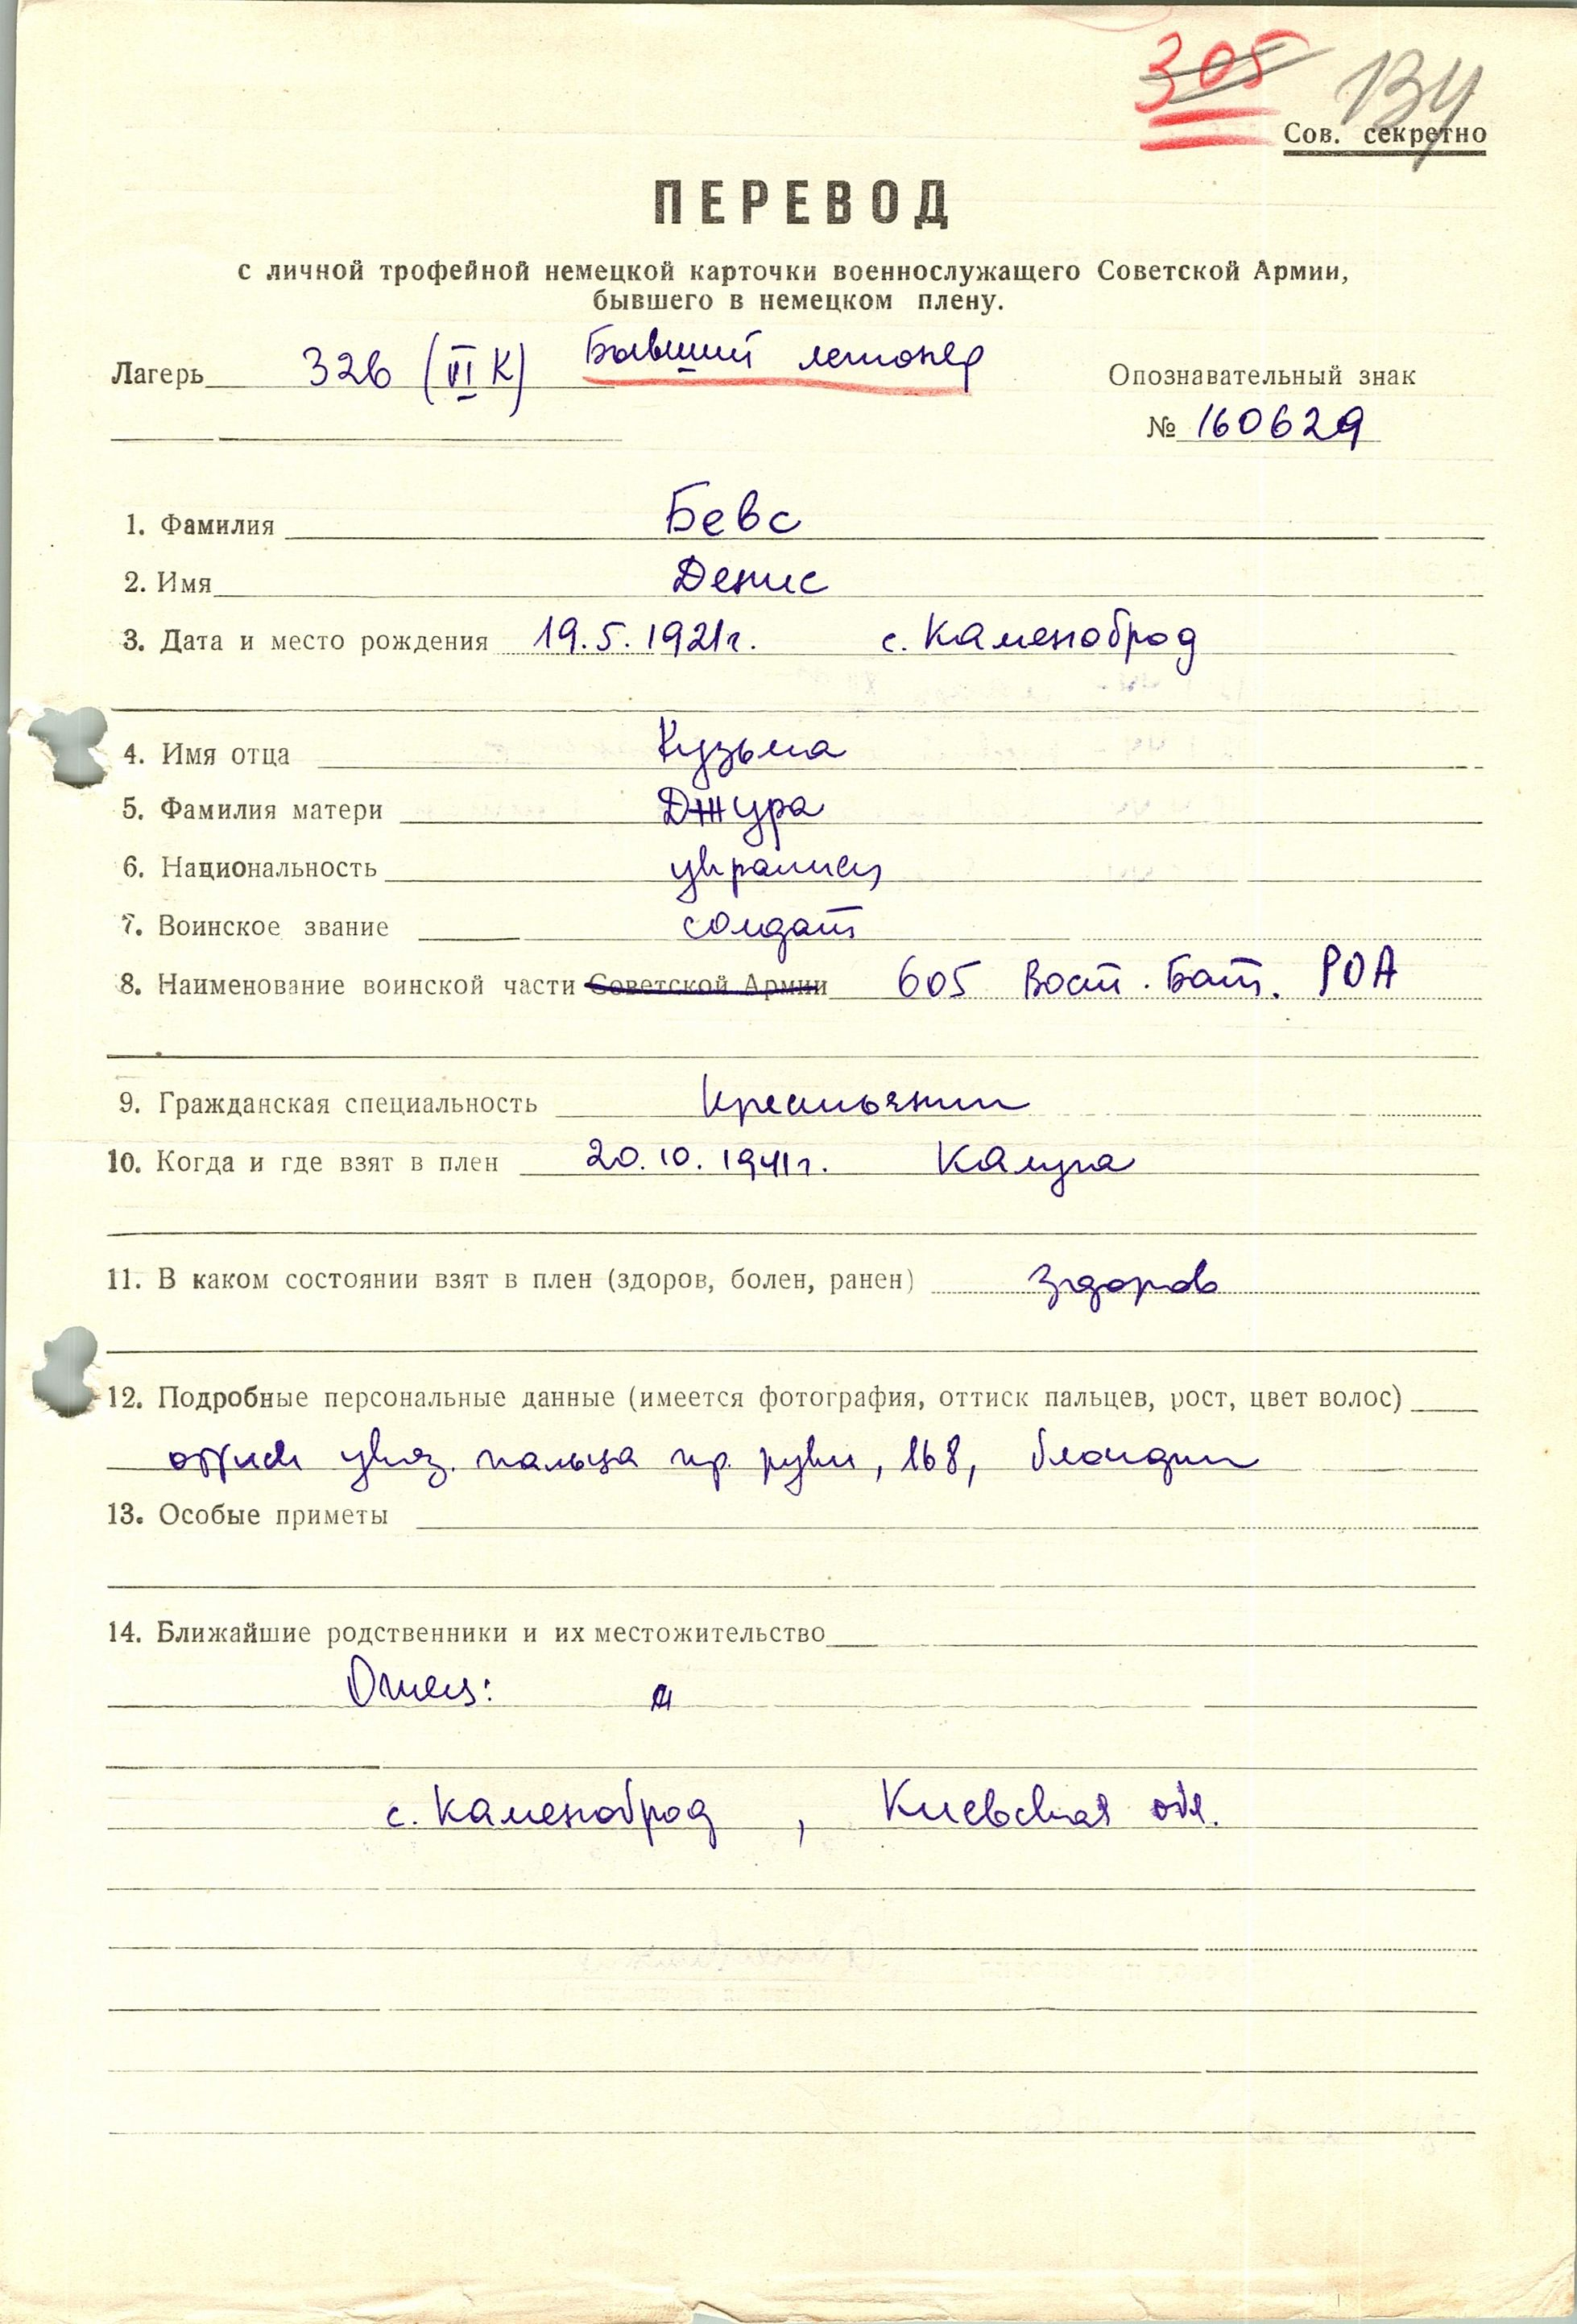 305 134
Сов. секретно
ПЕРЕВОД
с личной трофейной немецкой карточки военнослужащего Советской Армии,
бывшего в немецком плену.
Лагерь 326 (VI К) Бывший легионер Опознавательный знак
№ 160629
1. Фамилия Бевс
2. Имя Денис
3. Дата и место рождения 19.5.1921г. с. Каменоброд
4. Имя отца Кузьма
5. Фамилия матери Джура
6. Национальность украинец
7. Воинское звание солдат
8. Наименование воинской части Советской Армии 605 Вост. Бат. РОА
9. Гражданская специальность крестьянин
10. Когда и где взят в плен 20.10.1941г. Калуга
11. В каком состоянии взят в плен (здоров, болен, ранен) здоров
12. Подробные персональные данные (имеется фотография, оттиск пальцев, рост, цвет волос)
оттиск указ. пальца пр. руки, 168, блондин
13. Особые приметы
14. Ближайшие родственники и их местожительство
Отец:
с. Каменоброд, Киевская обл.